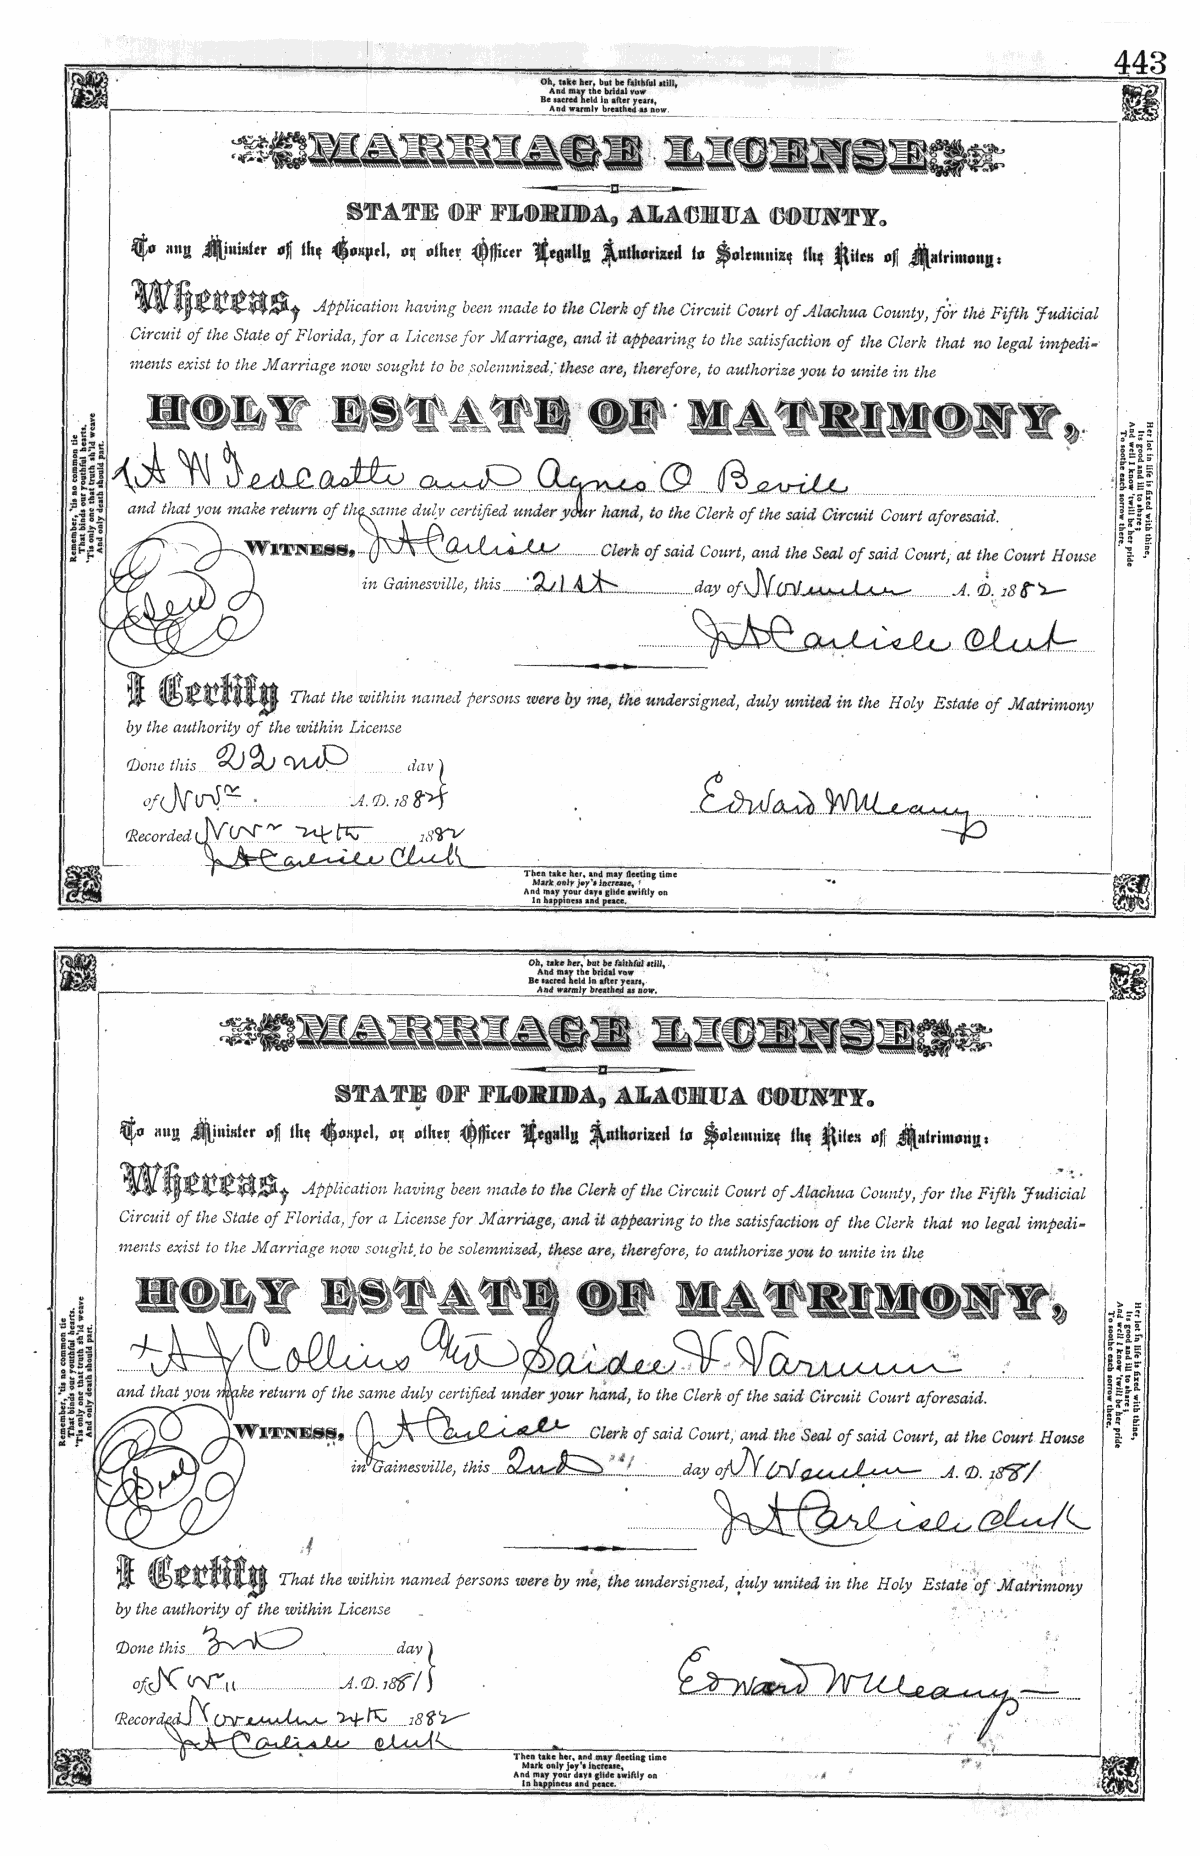 443
Oh, take her, but be faithful still,
And may the bridal vow
Be sacred held in after years,
And warmly breathed as now.
MARRIAGE LICENSE
STATE OF FLORIDA, ALACHUA COUNTY.
To any Minister of the Gospel, or other Officer Legally Authorized to Solemnize the Rites of Matrimony:
Whereas, Application having been made to the Clerk of the Circuit Court of Alachua County, for the Fifth Judicial
Circuit of the State of Florida, for a License for Marriage, and it appearing to the satisfaction of the Clerk that no legal impedi-
ments exist to the Marriage now sought to be solemnized, these are, therefore, to authorize you to unite in the
HOLY ESTATE OF MATRIMONY,
A W Tedcastle and Agnes O Bevill
and that you make return of the same duly certified under your hand, to the Clerk of the said Circuit Court aforesaid.
WITNESS, J A Carlisle Clerk of said Court, and the Seal of said Court, at the Court House
in Gainesville, this 21st day of November A. D. 1882
Seal
J A Carlisle Clerk
I Certify That the within named persons were by me, the undersigned, duly united in the Holy Estate of Matrimony
by the authority of the within License
Done this 22nd day
of Novr A. D. 1882
Edward W Meany
Recorded Novr 24th 1882
J A Carlisle Clerk
Remember, 'tis no common tie
That binds our youthful hearts,
'Tis only one that truth sh'ld weave
And only death should part.
Her lot in life is fixed with thine,
Its good and ill to share;
And well I know 'twill be her pride
To soothe each sorrow there.
Then take her, and may fleeting time
Mark only joy's increase,
And may your days glide swiftly on
In happiness and peace.
Oh, take her, but be faithful still,
And may the bridal vow
Be sacred held in after years,
And warmly breathed as now.
MARRIAGE LICENSE
STATE OF FLORIDA, ALACHUA COUNTY.
To any Minister of the Gospel, or other Officer Legally Authorized to Solemnize the Rites of Matrimony:
Whereas, Application having been made to the Clerk of the Circuit Court of Alachua County, for the Fifth Judicial
Circuit of the State of Florida, for a License for Marriage, and it appearing to the satisfaction of the Clerk that no legal impedi-
ments exist to the Marriage now sought to be solemnized, these are, therefore, to authorize you to unite in the
HOLY ESTATE OF MATRIMONY,
A J Collins And Saidee V Varnum
and that you make return of the same duly certified under your hand, to the Clerk of the said Circuit Court aforesaid.
WITNESS, J A Carlisle Clerk of said Court, and the Seal of said Court, at the Court House
in Gainesville, this 2nd day of November A. D. 1881
Seal
J A Carlisle Clerk
I Certify That the within named persons were by me, the undersigned, duly united in the Holy Estate of Matrimony
by the authority of the within License
Done this 3rd day
of Novr A. D. 1881
Edward W Meany
Recorded November 24th 1882
J A Carlisle Clerk
Remember, 'tis no common tie
That binds our youthful hearts,
'Tis only one that truth sh'ld weave
And only death should part.
Her lot in life is fixed with thine,
Its good and ill to share;
And well I know 'twill be her pride
To soothe each sorrow there.
Then take her, and may fleeting time
Mark only joy's increase,
And may your days glide swiftly on
In happiness and peace.